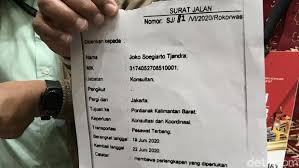 SURAT JALAN
Nomor: SJ/ 81 /VI/2020/Rokorwas
Diberikan kepada :
Nama : Joko Soegiarto Tjandra.
NIK : 3174052708510001.
Jabatan : Konsultan.
Pengikut : -
Pergi dari : Jakarta.
Tujuan : Pontianak Kalimantan Barat.
Keperluan : Konsultasi dan Koordinasi.
Transportasi : Pesawat Terbang.
Berangkat tanggal : 19 Juni 2020.
Kembali tanggal : 22 Juni 2020.
: membawa perlengkapan yang diperlukan
detikcom